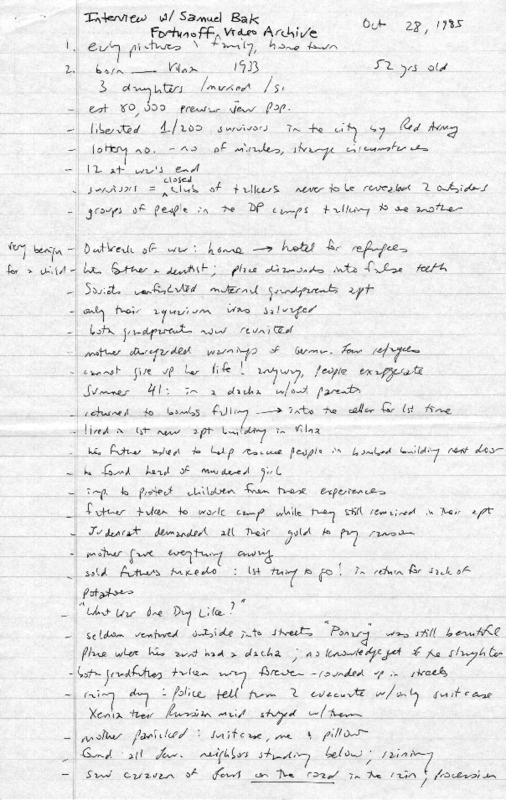 Interview w/ Samuel Bak Oct 28, 1985
Fortunoff Video Archive
1. early pictures family, home town
2. born — Vilna 1933 52 yrs old
3 daughters / married /
- est 80,000 prewar Jew pop.
- liberated 1/200 survivors in the city by Red Army
- lottery no. - no of miracles, strange circumstances
- 12 at war's end
- survivors = closed club of talkers never to be revealed 2 outsiders
- groups of people in the DP camps talking to one another
very benign for a child - Outbreak of war: home → hotel for refugees
- his father a dentist; place diamonds into false teeth
- Soviets confiscated maternal grandparents apt
- only their aquarium was salvaged
- both grandparents now reunited
- mother disregarded warnings of German Jew refugees
- cannot give up her life! anyway, people exaggerate
- Summer 41: in a dacha w/out parents
- returned to bombs falling → into the cellar for 1st time
- lived in 1st new apt building in Vilna
- his father asked to help rescue people in bombed building next door
- he found head of murdered girl
- imp. to protect children from these experiences
- father taken to work camp while they still remained in their apt
- Judenrat demanded all their gold to pay ransom
- mother gave everything away
- sold fathers tuxedo: 1st thing to go! in return for sack of
potatoes
- "What Was One Day Like?"
- seldom ventured outside into streets "Ponary" was still beautiful
place where his aunt had a dacha; no knowledge yet of the slaughter
- both grandfathers taken away forever - rounded up in streets
- rainy day: Police tell them 2 evacuate w/only suitcase
Xenia their Russian maid stayed w/them
- mother panicked: suitcase, me & pillow
- found all Jew. neighbors standing below; raining
- saw caravan of Jews on the road in the rain; procession